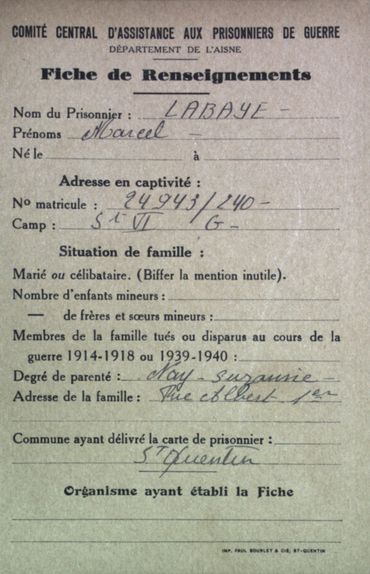 COMITÉ CENTRAL D'ASSISTANCE AUX PRISONNIERS DE GUERRE
DÉPARTEMENT DE L'AISNE
Fiche de Renseignements
Nom du Prisonnier : LABAYE -
Prénoms Marcel -
Né le à
Adresse en captivité :
No matricule : 24943/240 -
Camp : St VI G -
Situation de famille :
Marié ou célibataire. (Biffer la mention inutile).
Nombre d'enfants mineurs :
— de frères et sœurs mineurs :
Membres de la famille tués ou disparus au cours de la
guerre 1914-1918 ou 1939-1940 :
Degré de parenté : Nay - Suzanne -
Adresse de la famille : Rue Albert 1er
Commune ayant délivré la carte de prisonnier :
St Quentin
Organisme ayant établi la Fiche
IMP. PAUL BOURLET & CIE, ST-QUENTIN